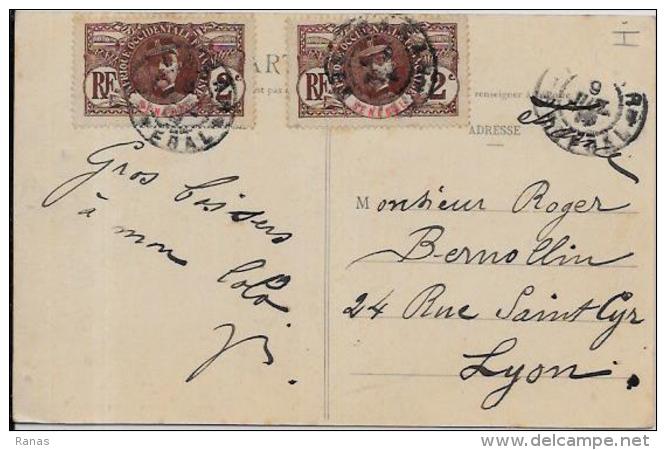 AFRIQUE OCCIDENTALE FRANÇAISE
RF 2c
SÉNÉGAL
AFRIQUE OCCIDENTALE FRANÇAISE
RF 2c
SÉNÉGAL
ADRESSE
Gros baisers
à mon
Lolo
Monsieur Roger
Bernollin
24 Rue Saint Cyr
Lyon.
Ranas
www.delcampe.net